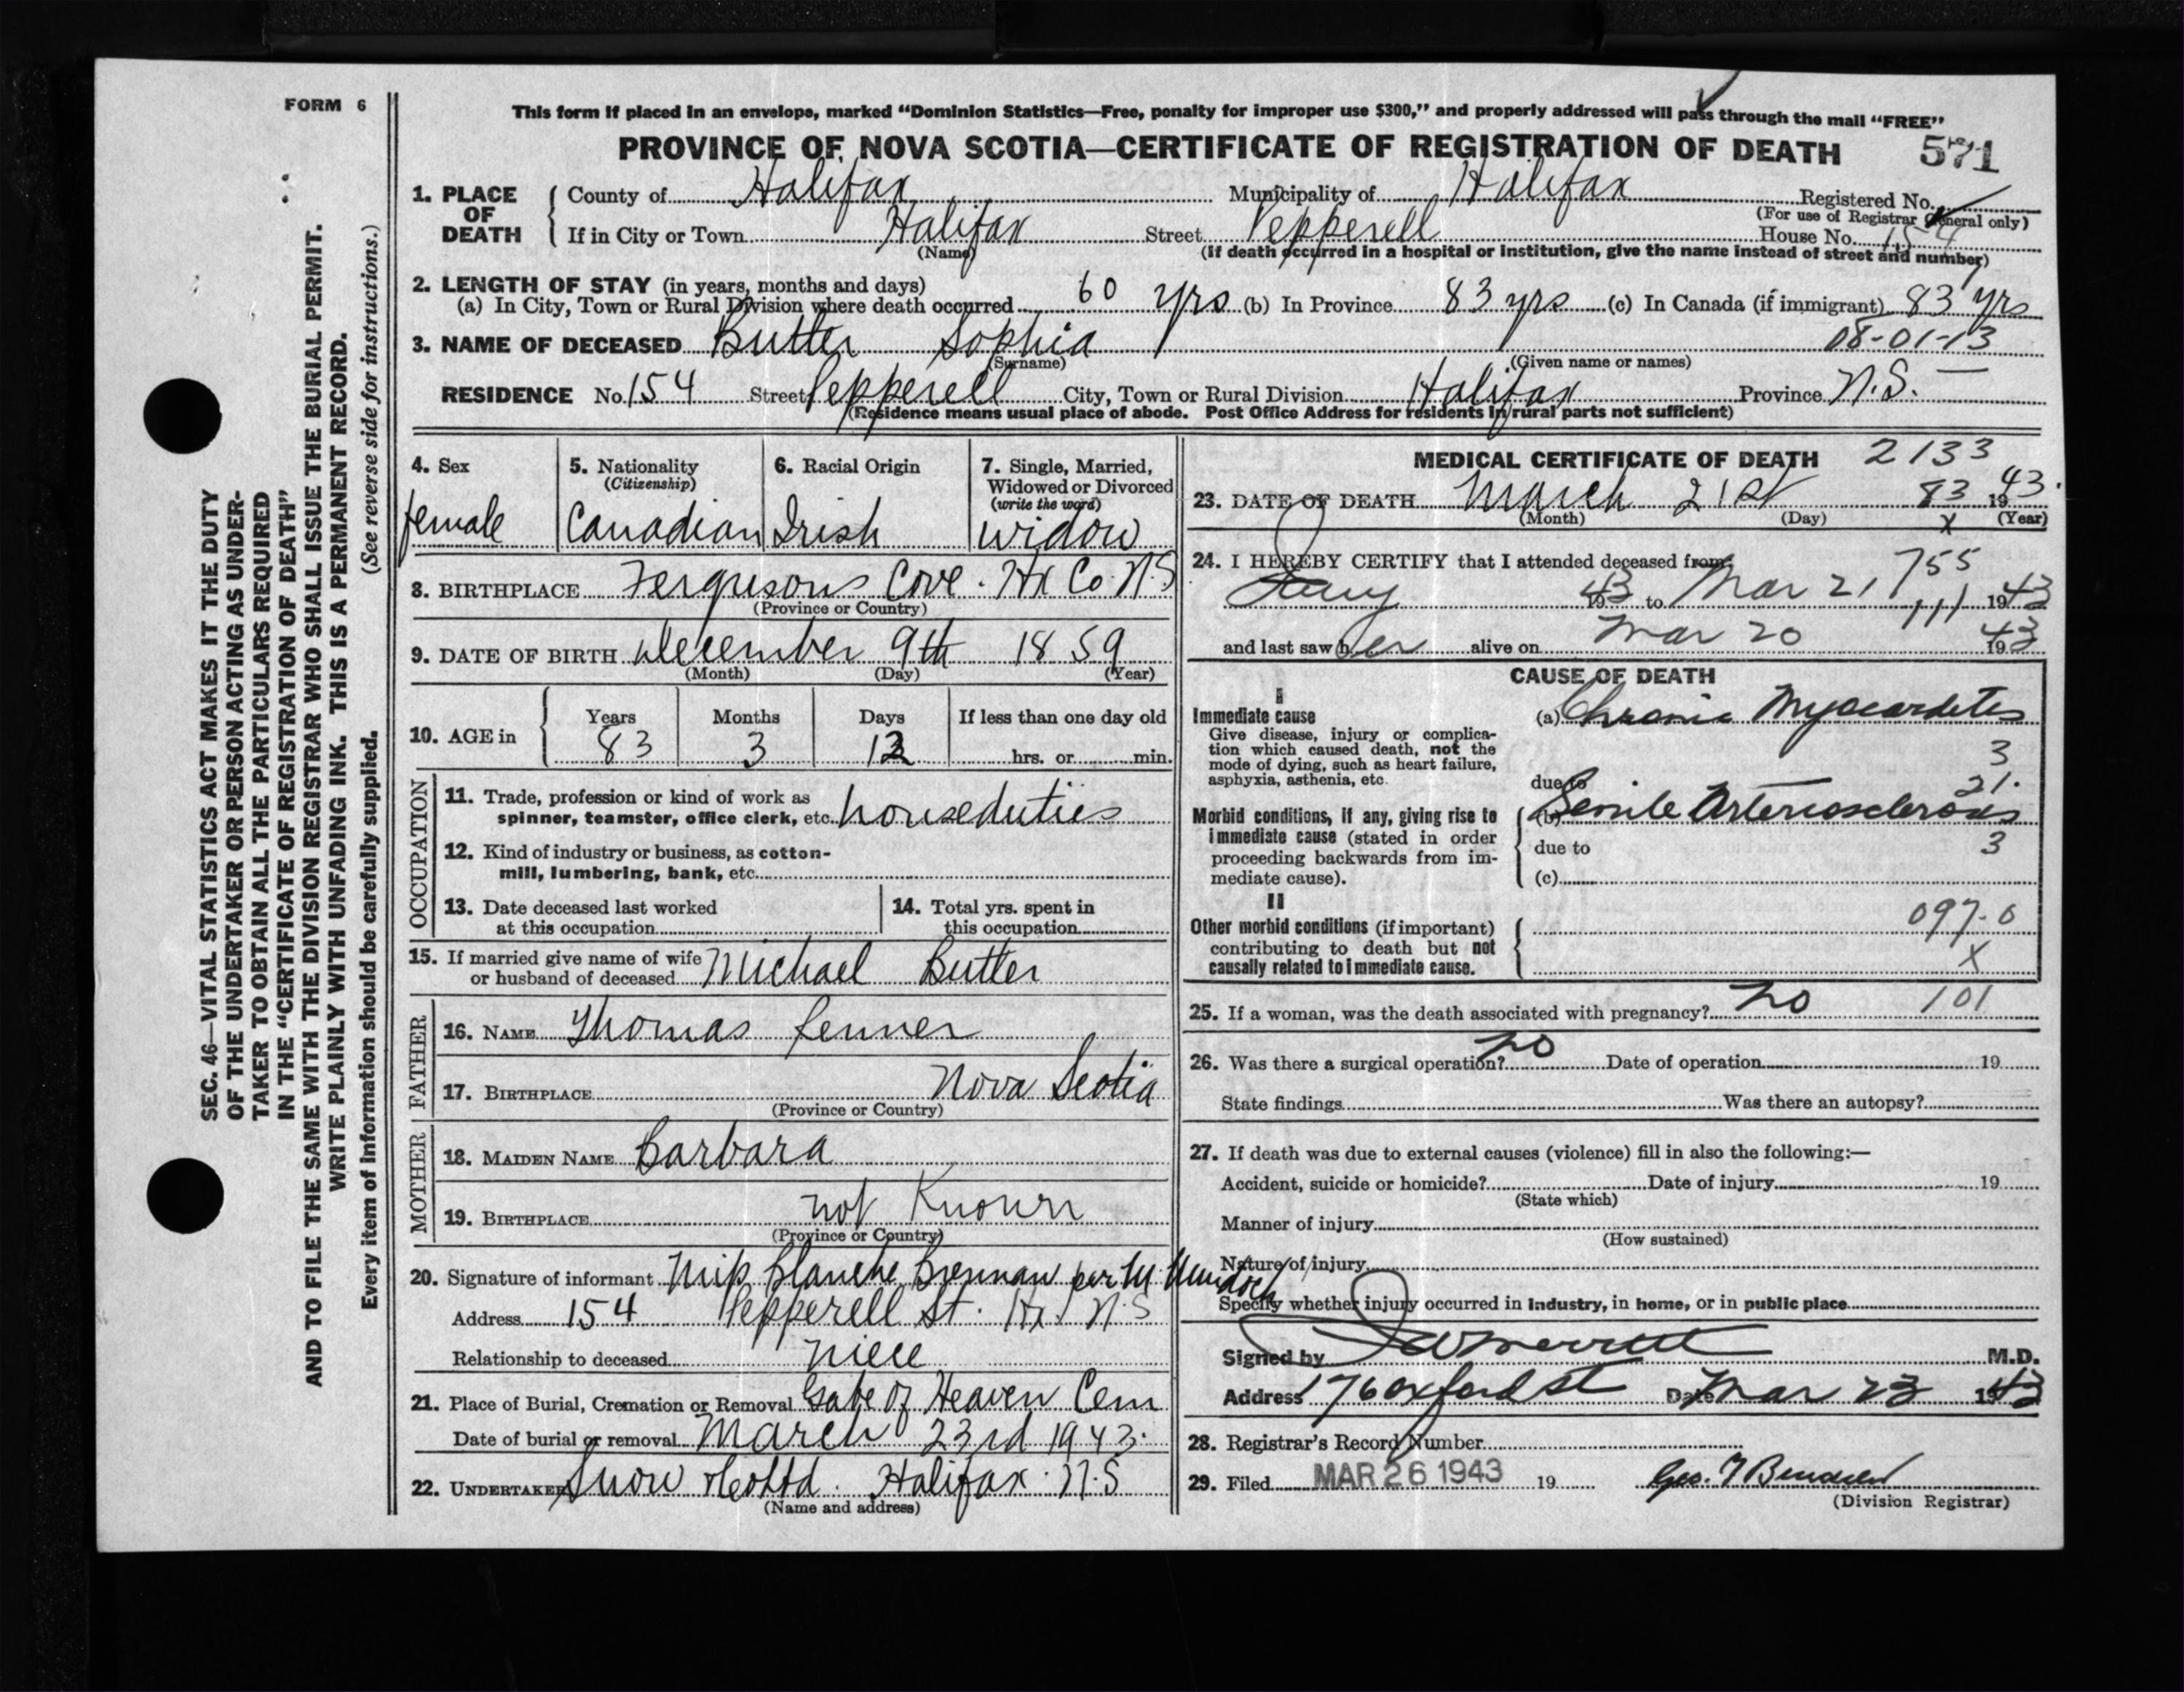 FORM 6
This form if placed in an envelope, marked “Dominion Statistics—Free, penalty for improper use $300,” and properly addressed will pass through the mail “FREE”
PROVINCE OF NOVA SCOTIA—CERTIFICATE OF REGISTRATION OF DEATH 571
1. PLACE OF DEATH County of Halifax Municipality of Halifax Registered No.
(For use of Registrar General only)
If in City or Town Halifax Street Pepperell House No. 154
(Name) (If death occurred in a hospital or institution, give the name instead of street and number)
2. LENGTH OF STAY (in years, months and days)
(a) In City, Town or Rural Division where death occurred 60 yrs (b) In Province 83 yrs (c) In Canada (if immigrant) 83 yrs
08-01-13
3. NAME OF DECEASED Butler Sophia
(Surname) (Given name or names)
RESIDENCE No. 154 Street Pepperell City, Town or Rural Division Halifax Province N.S.
(Residence means usual place of abode. Post Office Address for residents in rural parts not sufficient)
4. Sex female
5. Nationality (Citizenship) Canadian
6. Racial Origin Irish
7. Single, Married, Widowed or Divorced (write the word) widow
8. BIRTHPLACE Fergusons Cove. Hx Co. N.S
(Province or Country)
9. DATE OF BIRTH December 9th 1859
(Month) (Day) (Year)
10. AGE in Years 83 Months 3 Days 12 If less than one day old hrs. or min.
OCCUPATION
11. Trade, profession or kind of work as spinner, teamster, office clerk, etc. houseduties
12. Kind of industry or business, as cotton-mill, lumbering, bank, etc.
13. Date deceased last worked at this occupation
14. Total yrs. spent in this occupation
15. If married give name of wife or husband of deceased Michael Butler
FATHER
16. NAME Thomas Fenner
17. BIRTHPLACE Nova Scotia
(Province or Country)
MOTHER
18. MAIDEN NAME Barbara
19. BIRTHPLACE not Known
(Province or Country)
20. Signature of informant Miss Blanche Brennan per M. Murdoch
Address 154 Pepperell St. Hx. N.S
Relationship to deceased niece
21. Place of Burial, Cremation or Removal Gate of Heaven Cem
Date of burial or removal March 23rd 1943.
22. UNDERTAKER Snow & Co Ltd. Halifax. N.S
(Name and address)
MEDICAL CERTIFICATE OF DEATH 2133
23. DATE OF DEATH March 21st 83 1943.
(Month) (Day) x (Year)
24. I HEREBY CERTIFY that I attended deceased from 755
Jany 1943 to Mar 21 1943
and last saw her alive on Mar 20 1943
CAUSE OF DEATH
I
Immediate cause
Give disease, injury or complication which caused death, not the mode of dying, such as heart failure, asphyxia, asthenia, etc.
(a) Chronic Myocardites
3
due to
21.
Morbid conditions, if any, giving rise to immediate cause (stated in order proceeding backwards from immediate cause).
(b) Senile Arteriosclerosis
due to 3
(c)
II
Other morbid conditions (if important) contributing to death but not causally related to immediate cause.
097-0
X
25. If a woman, was the death associated with pregnancy? no 101
26. Was there a surgical operation? no Date of operation 19
State findings Was there an autopsy?
27. If death was due to external causes (violence) fill in also the following:—
Accident, suicide or homicide? Date of injury 19
(State which)
Manner of injury
(How sustained)
Nature of injury
Specify whether injury occurred in industry, in home, or in public place
Signed by Merritt M.D.
Address 176 Oxford St Date Mar 23 1943
28. Registrar's Record Number
29. Filed MAR 26 1943 19 Geo.
(Division Registrar)
SEC. 46—VITAL STATISTICS ACT MAKES IT THE DUTY
OF THE UNDERTAKER OR PERSON ACTING AS UNDER-
TAKER TO OBTAIN ALL THE PARTICULARS REQUIRED
IN THE “CERTIFICATE OF REGISTRATION OF DEATH”
AND TO FILE THE SAME WITH THE DIVISION REGISTRAR WHO SHALL ISSUE THE BURIAL PERMIT.
WRITE PLAINLY WITH UNFADING INK. THIS IS A PERMANENT RECORD.
Every item of information should be carefully supplied. (See reverse side for instructions.)